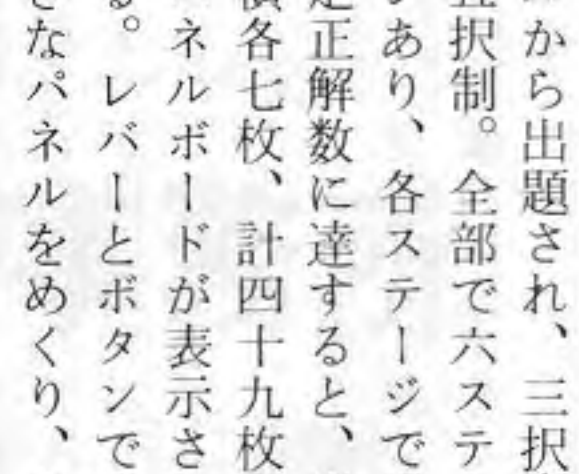 から出題され、三択
択制。全部で六ステ
あり、各ステージで
正解数に達すると、
各七枚、計四十九枚
ネルボードが表示さ
る。レバーとボタンで
きなパネルをめくり、